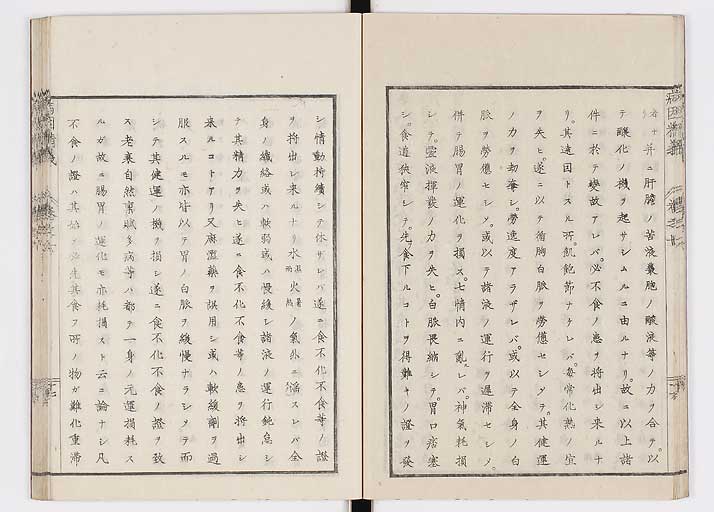 者ナ并ニ肝膽ノ苦液嚢胞ノ酸液等ノ力ヲ合テ。以
テ醸化ノ機ヲ起サシムルニ由ルナリ。故ニ以上諸
件ニ於テ變故アレバ。必不食ノ患ヲ將出シ來ルナ
リ。其遠因トスル所。飢飽節ナケレバ。毎常化熟ノ宜
ヲ失ヒ。遂ニ以テ胸白脉ヲ勞僊セシメテ。其健運
ノ力ヲ劫奪シ。勞逸度アラザレバ。或以テ全身ノ白
脉ヲ勞僊セシメ。或以テ諸液ノ運行ヲ遲滞セシメ。
併テ腸胃ノ運化ヲ損ス。七情内ニ亂レバ。神氣耗損
シテ。靈液揮發ノ力ヲ失ヒ。白脉畏縮シテ。胃口痞塞
シ。食道狹窄シテ。先食下ルコトヲ得難キノ證ヲ發
シ情動持續シテ休サレバ遂ニ食不化不食等ノ證
ヲ將出シ來ルナリ水濕雨火暑熱ノ氣外ニ滛スレバ全
身ノ纎絡或ハ軟弱或ハ慢緩シ諸液ノ運行鈍怠シ
テ其精力ヲ失ヒ遂ニ食不化不食等ノ患ヲ將出シ
來ルコトアリ又麻濫藥ヲ誤用シ或ハ軟緩劑ヲ過
服スルモ亦皆以テ胃ノ白脉ヲ緩慢ナラシメテ而
シテ其健運ノ機ヲ損シ遂ニ食不化不食ノ證ヲ致
ス老衰自然稟賦多病等ハ都テ一身ノ元運損耗ス
ルガ故ニ腸胃ノ運化モ亦耗損スト云ニ論ナシ凡
不食ノ證ハ其始メ必先其食フ所ノ物ガ難化重滞